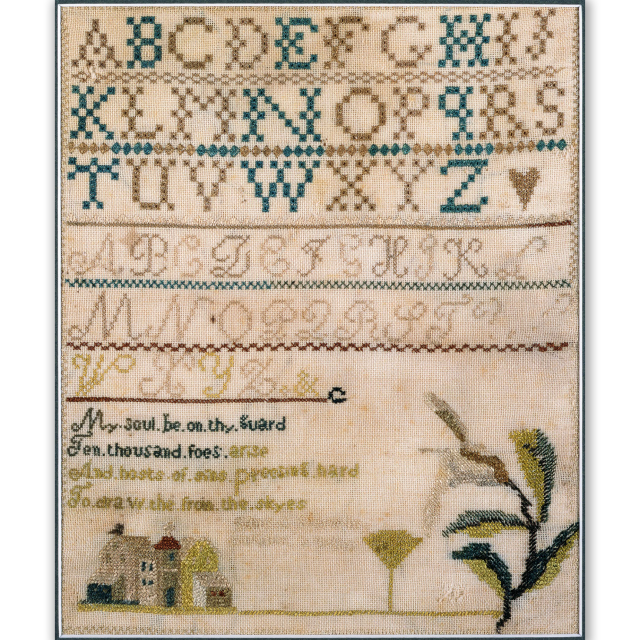 A B C D E F G H I J
K L M N O P q R S
T U V W X Y Z
A B C D E F G H I K L
M N O P Q R S T
W X Y Z &
My.soul.be.on.thy.guard
Ten.thousand.foes.arise
And.hosts.of.sins hard
To.draw.the.from.the.skyes